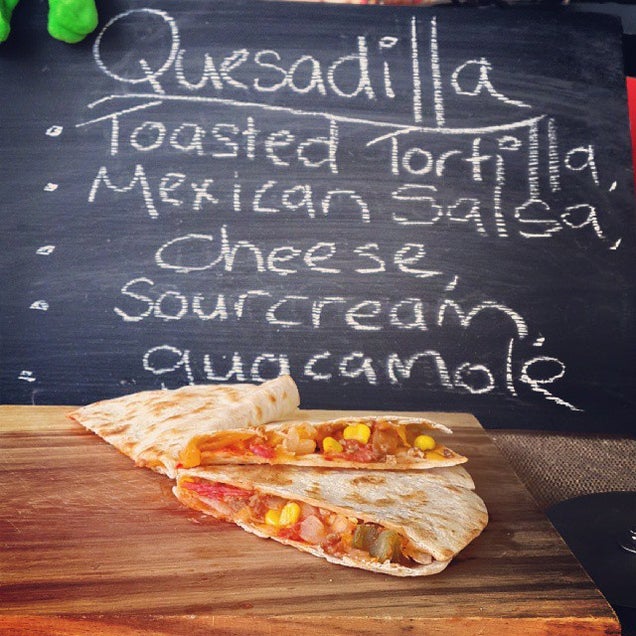 Quesadilla
Toasted Tortilla,
Mexican Salsa,
Cheese,
Sourcream
guacamole